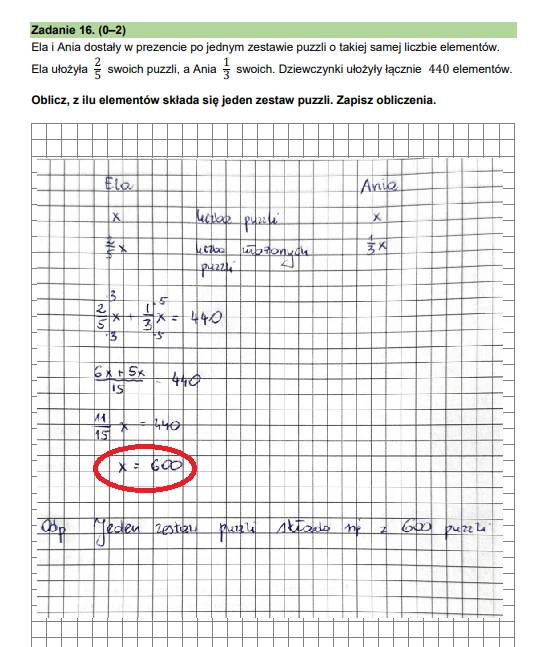 Zadanie 16. (0–2)
Ela i Ania dostały w prezencie po jednym zestawie puzzli o takiej samej liczbie elementów.
Ela ułożyła 2/5 swoich puzzli, a Ania 1/3 swoich. Dziewczynki ułożyły łącznie 440 elementów.
Oblicz, z ilu elementów składa się jeden zestaw puzzli. Zapisz obliczenia.
Ela Ania
x liczba puzzli x
2/5 x liczba ułożonych puzzli 1/3 x
2·3/5·3 x + 1·5/3·5 x = 440
6x + 5x/15 = 440
11/15 x = 440
x = 600
Odp Jeden zestaw puzzli składa się z 600 puzzli